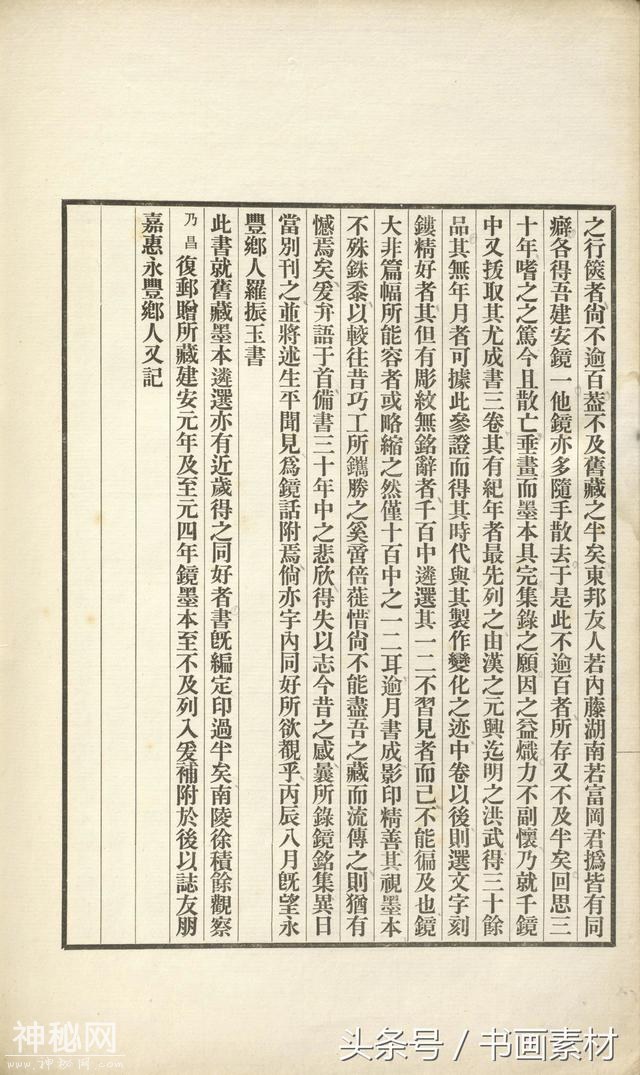 之行篋者尙不逾百葢不及舊藏之半矣東邦友人若內藤湖南若富岡君撝皆有同
癖各得吾建安鏡一他鏡亦多隨手散去于是此不逾百者所存又不及半矣回思三
十年嗜之之篤今且散亡垂盡而墨本具完集錄之願因之益熾力不副懷乃就千鏡
中又拔取其尤成書三卷其有紀年者最先列之由漢之元興迄明之洪武得三十餘
品其無年月者可據此參證而得其時代與其製作變化之迹中卷以後則選文字刻
鏤精好者其但有彫紋無銘辭者千百中遴選其一二不習見者而已不能徧及也鏡
大非篇幅所能容者或略縮之然僅十百中之一二耳逾月書成影印精善其視墨本
不殊銖黍以較往昔巧工所鐫勝之奚啻倍蓰惜尙不能盡吾之藏而流傳之則猶有
憾焉矣爰弁語于首備書三十年中之悲欣得失以志今昔之感曩所錄鏡銘集異日
當別刊之並將述生平聞見爲鏡話附焉倘亦宇內同好所欲覩乎丙辰八月旣望永
豐鄉人羅振玉書
此書就舊藏墨本遴選亦有近歲得之同好者書旣編定印過半矣南陵徐積餘觀察
乃昌復郵贈所藏建安元年及至元四年鏡墨本至不及列入爰補附於後以誌友朋
嘉惠永豐鄉人又記
神秘网
www.神秘网.com
头条号 / 书画素材